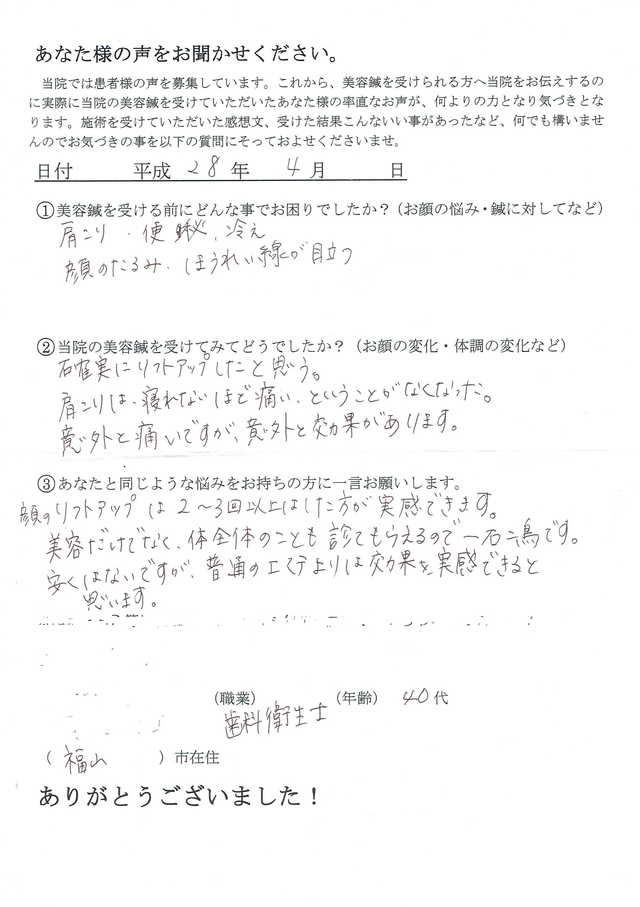 あなた様の声をお聞かせください。
当院では患者様の声を募集しています。これから、美容鍼を受けられる方へ当院をお伝えするの
に実際に当院の美容鍼を受けていただいたあなた様の率直なお声が、何よりの力となり気づきとな
ります。施術を受けていただいた感想文、受けた結果こんないい事があったなど、何でも構いませ
んのでお気づきの事を以下の質問にそっておよせくださいませ。
日付 平成 28 年 4 月 日
①美容鍼を受ける前にどんな事でお困りでしたか？（お顔の悩み・鍼に対してなど）
肩こり・便秘、冷え
顔のたるみ・ほうれい線が目立つ
②当院の美容鍼を受けてみてどうでしたか？（お顔の変化・体調の変化など）
確実にリフトアップしたと思う。
肩こりは、寝れないほど痛い、ということがなくなった。
意外と痛いですが、意外と効果があります。
③あなたと同じような悩みをお持ちの方に一言お願いします。
顔のリフトアップは2～3回以上はした方が実感できます。
美容だけでなく、体全体のことも診てもらえるので一石二鳥です。
安くはないですが、普通のエステよりは効果を実感できると
思います。
（職業） （年齢） 40代
歯科衛生士
（ 福山 ）市在住
ありがとうございました！